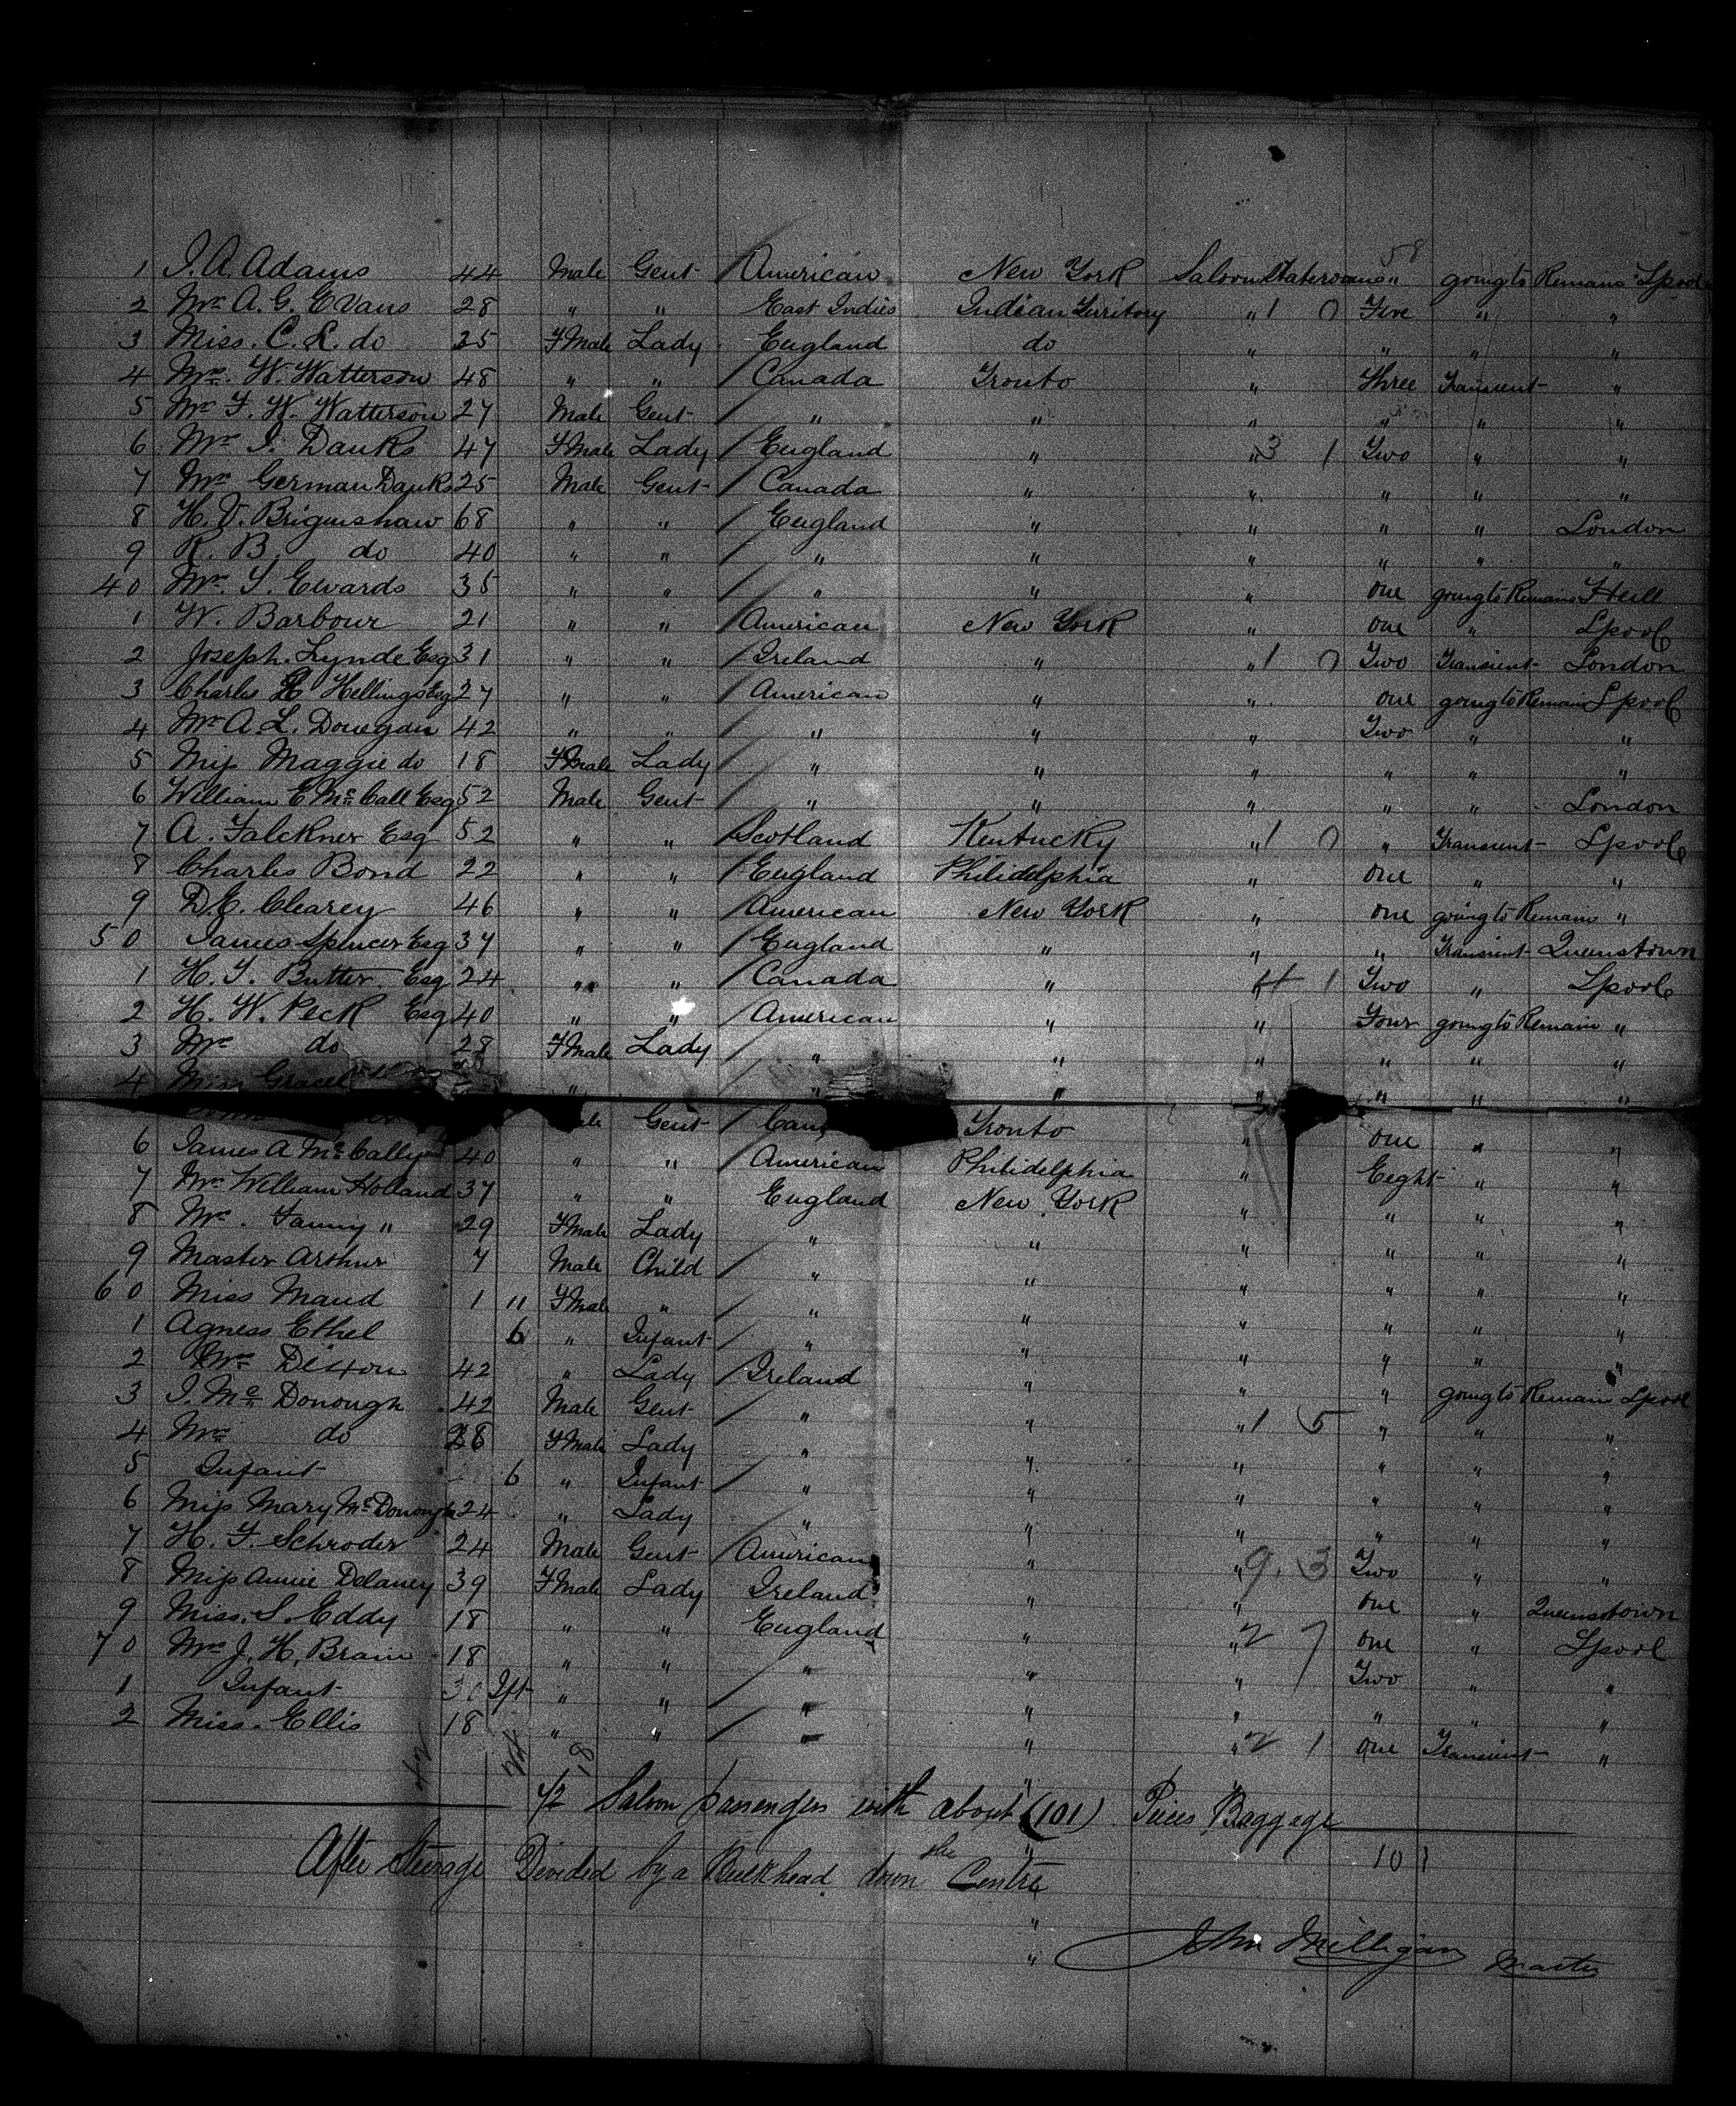 58
1 J. A. Adams 44 Male Gent American New York Saloon Staterooms " going to Remain L'pool
2 Mr A. G. Evans 28 " " East Indies Indian Turritory " 1 0 Five " "
3 Miss. C. R. do 25 FMale Lady England do " " " "
4 Mrs. W. Watterson 48 " " Canada Tronto " Three Transient "
5 Mr F. W. Watterson 27 Male Gent " " " " " "
6 Mrs J. Danks 47 FMale Lady England " " 3 1 Two " "
7 Mr German Danks 25 Male Gent Canada " " " " "
8 H. V. Briginshaw 68 " " England " " " " London
9 R. B. do 40 " " " " " " " "
40 Mr. S. Ewards 35 " " " " " one going to Remain Hull
1 W. Barbour 21 " " American New York " one " Lpool
2 Joseph. Lynde Esq 31 " " Ireland " " 1 0 Two Transient London
3 Charles Hellings Esq 27 " " American " " one going to Remain Lpool
4 Mr A. L. Donegan 42 " " " " " Two " "
5 Miss Maggie do 18 FMale Lady " " " " " "
6 William E. Mc Call Esq 52 Male Gent " " " " " London
7 A. Falckner Esq 52 " " Scotland Kentucky " 1 0 " Transient Lpool
8 Charles Bond 22 " " England Philidelphia " one " "
9 D. E. Clearey 46 " " American New York " one going to Remain "
50 James Spencer Esq 37 " " England " " " Transient Queenstown
1 H. J. Butter. Esq 24 " " Canada " 4 1 Two " Lpool
2 H. W. Peck Esq 40 " " American " " Four going to Remain "
3 Mrs do 28 FMale Lady " " " " " "
4 Miss Gracel " " " " " " "
Gent Can Tronto " one " "
6 James A Mc Cally 40 " " American Philidelphia " Eeght " "
7 Mr William Holland 37 " " England New York " " " "
8 Mrs. Fanny " 29 FMale Lady " " " " " "
9 Master Arthur 7 Male Child " " " " " "
60 Miss Maud 1 11 FMale " " " " " " "
1 Agness Ethel 6 " Infant " " " " " "
2 Mrs Dixon 42 " Lady Ireland " " " going to Remain Lpool
3 J. Mc Donough 42 Male Gent " " " 1 5 " " "
4 Mrs do 28 FMale Lady " " " " " "
5 Infant 6 " Infant " " " " " "
6 Miss Mary Mc Donough 24 " Lady " " " " " "
7 H. F. Schroder 24 Male Gent American " " 9. 3 Two " "
8 Miss Annie Delaney 39 FMale Lady Ireland " " one " Queenstown
9 Miss. S. Eddy 18 " " England " " 2 7 one " Lpool
70 Mrs J. H. Brain 18 " " " " " Two " "
1 Infant Ift " " " " " " " "
2 Miss. Ellis 18 " " " " " 2 1 one Transient "
42 18
42 Saloon passengers with about (101) Pieces Baggage
101
After Steerage Divided by a Bulkhead down the Centre
John Milligan Master